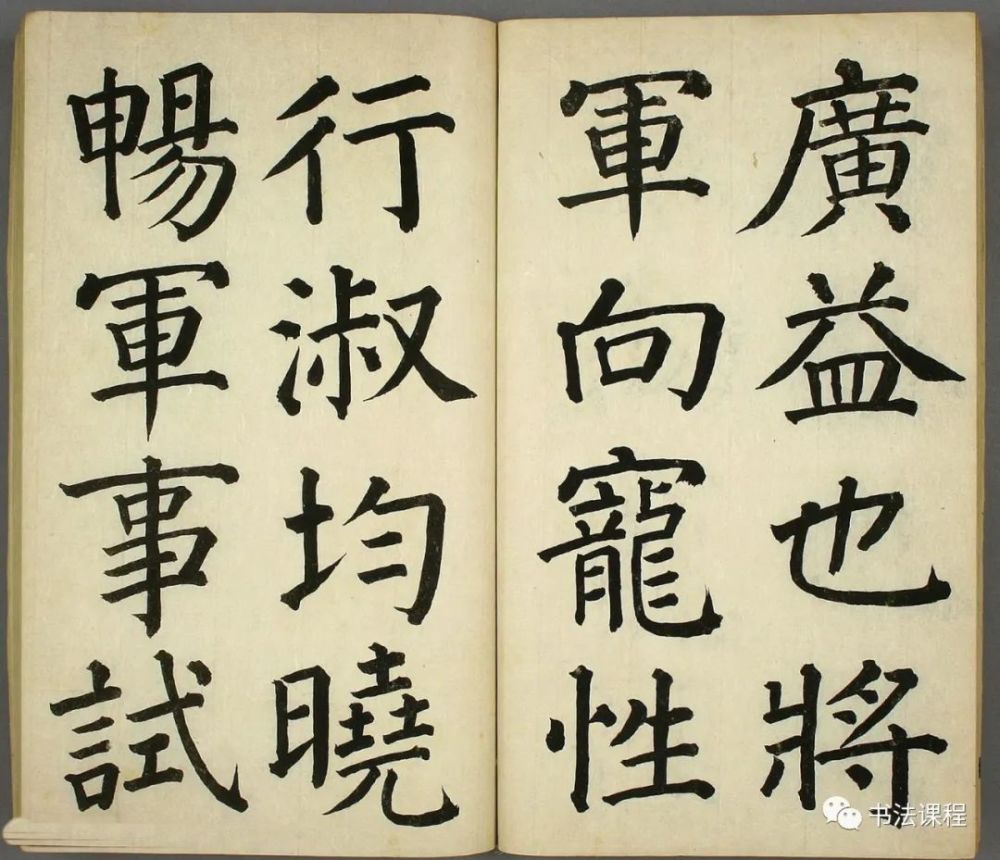 廣益也將
軍向寵性
行淑均曉
暢軍事試
书法课程